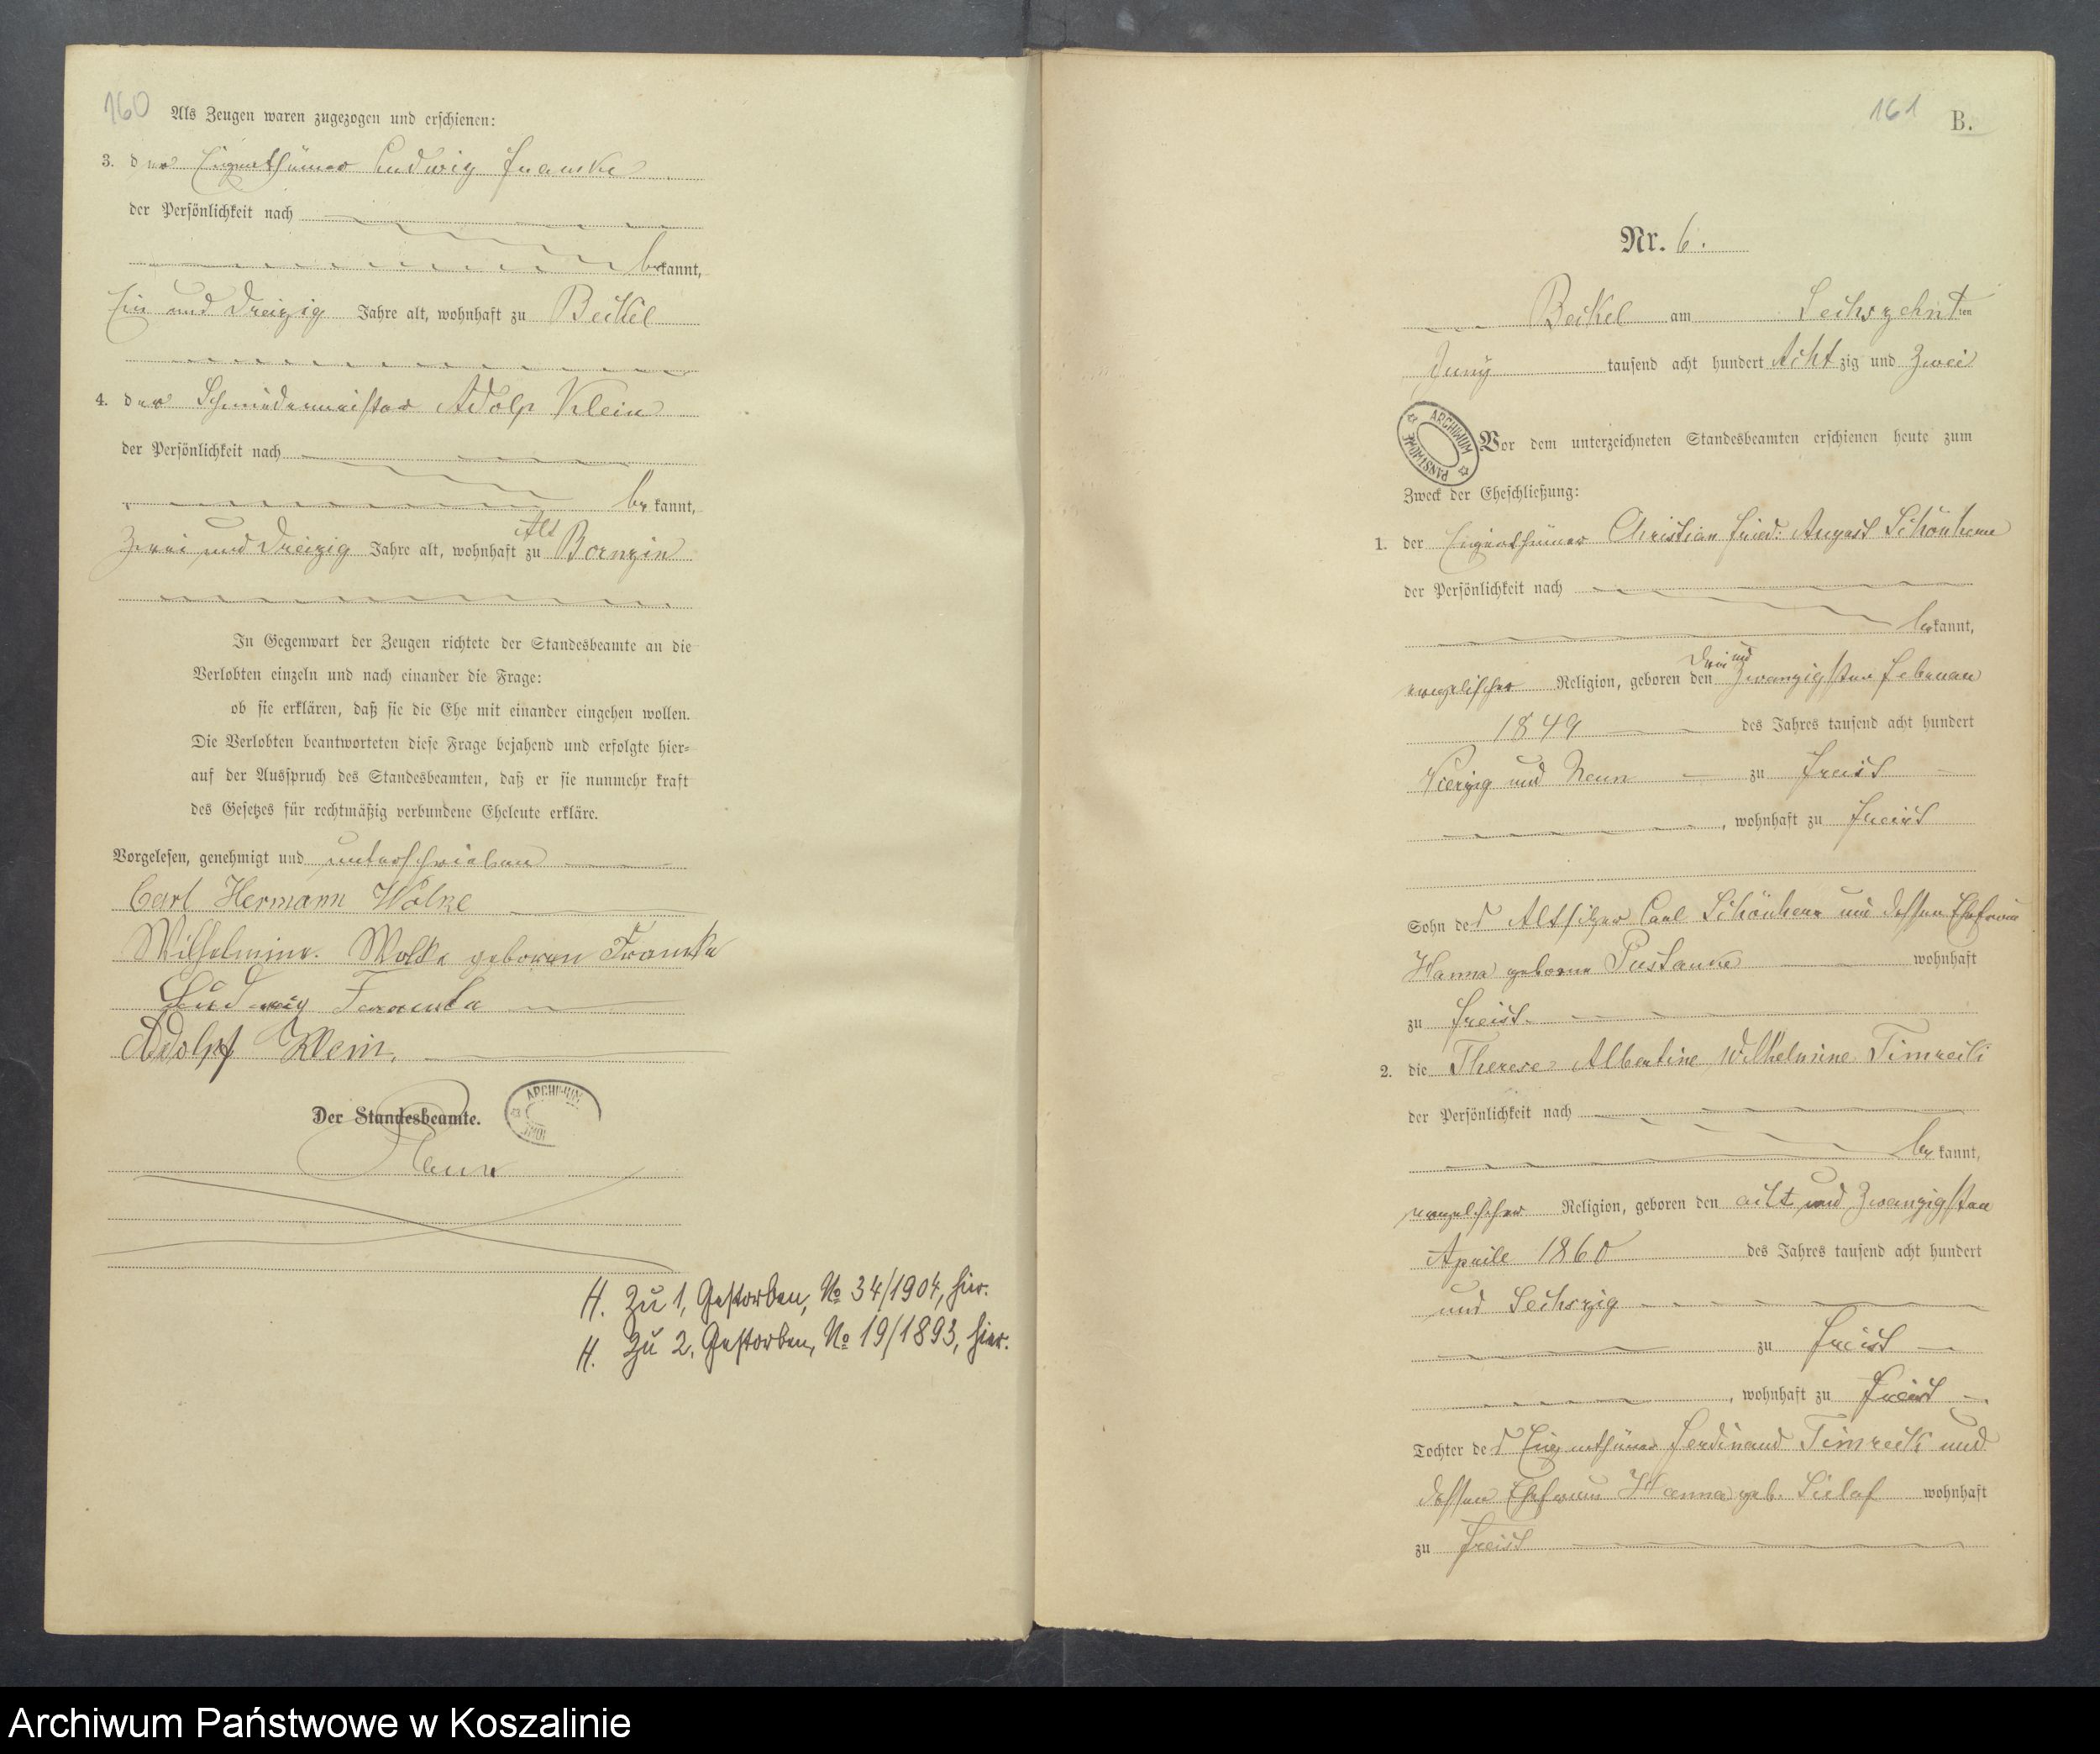 160
Als Zeugen waren zugezogen und erschienen:
3. der Eigenthümer Ludwig Franske
der Persönlichkeit nach
bekannt,
Ein und Dreizig Jahre alt, wohnhaft zu Beckel
4. der Schmiedemeister Adolp Klein
der Persönlichkeit nach
bekannt,
Alt
Zwei und Dreizig Jahre alt, wohnhaft zu Bornzin
In Gegenwart der Zeugen richtete der Standesbeamte an die
Verlobten einzeln und nach einander die Frage:
ob sie erklären, daß sie die Ehe mit einander eingehen wollen.
Die Verlobten beantworteten diese Frage bejahend und erfolgte hier-
auf der Ausspruch des Standesbeamten, daß er sie nunmehr kraft
des Gesetzes für rechtmäßig verbundene Eheleute erkläre.
Vorgelesen, genehmigt und unterschrieben
Carl Hermann Wolke
Wilhelmine Wolke geboren Franske
Ludwig
Adolpf Klein.
Der Standesbeamte.
ARCHIWUM
H. Zu 1, Gestorben, № 34/1904, hier.
H. Zu 2, Gestorben, № 19/1893, hier.
161
B.
Nr. 6.
Beckel am Sechszehnt ten
Juny tausend acht hundert Acht zig und Zwei
ARCHIWUM PAŃSTWOWE
Vor dem unterzeichneten Standesbeamten erschienen heute zum
Zweck der Eheschließung:
1. der Eigenthümer Christian Fried: August Schönherr
der Persönlichkeit nach
bekannt,
Drei und
evangelischer Religion, geboren den Zwanzigsten Februar
1849 des Jahres tausend acht hundert
Vierzig und Neun zu Freist
, wohnhaft zu Freist
Sohn des Altsitzer Carl Schönherr und dessen Ehefrau
Hanna geborne Pustanke wohnhaft
zu Freist
2. die Therese Albertine Wilhelmine Timreck
der Persönlichkeit nach
bekannt,
evangelischer Religion, geboren den acht und Zwanzigsten
Aprile 1860 des Jahres tausend acht hundert
und Sechszig
zu Freist
, wohnhaft zu Freist
Tochter des Eigenthümer Ferdinand Timreck und
dessen Ehefrau Hanna geb. Sielaf wohnhaft
zu Freist
Archiwum Państwowe w Koszalinie